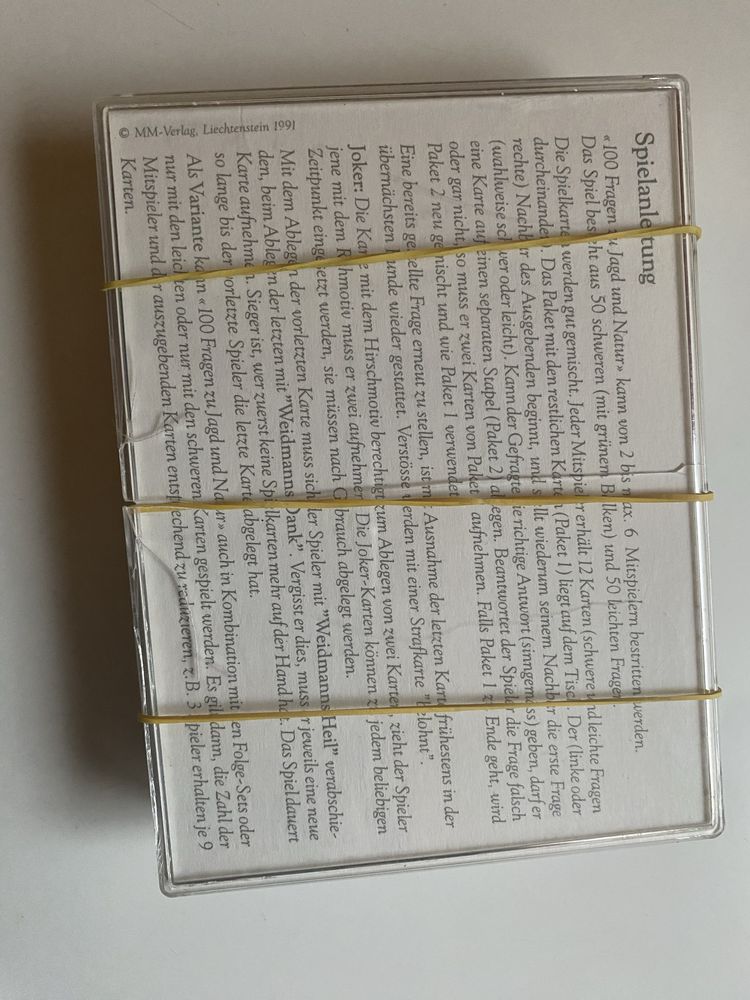 Spielanleitung
«100 Fragen zu Jagd und Natur» kann von 2 bis max. 6 Mitspielern bestritten werden.
Das Spiel besteht aus 50 schweren (mit grünem Balken) und 50 leichten Fragen.
Die Spielkarten werden gut gemischt. Jeder Mitspieler erhält 12 Karten (schwere und leichte Fragen
durcheinander). Das Paket mit den restlichen Karten (Paket 1) liegt auf dem Tisch. Der (linke oder
rechte) Nachbar des Ausgebenden beginnt, und stellt wiederum seinem Nachbar die erste Frage
(wahlweise schwer oder leicht). Kann der Gefragte die richtige Antwort (sinngemäss) geben, darf er
eine Karte auf einen separaten Stapel (Paket 2) ablegen. Beantwortet der Spieler die Frage falsch
oder gar nicht, so muss er zwei Karten von Paket 1 aufnehmen. Falls Paket 1 zu Ende geht, wird
Paket 2 neu gemischt und wie Paket 1 verwendet.
Eine bereits gestellte Frage erneut zu stellen, ist mit Ausnahme der letzten Karte frühestens in der
übernächsten Runde wieder gestattet. Verstösse werden mit einer Strafkarte "belohnt".
Joker: Die Karte mit dem Hirschmotiv berechtigt zum Ablegen von zwei Karten, zieht der Spieler
jene mit dem Rehmotiv muss er zwei aufnehmen. Die Joker-Karten können zu jedem beliebigen
Zeitpunkt eingesetzt werden, sie müssen nach Gebrauch abgelegt werden.
Mit dem Ablegen der vorletzten Karte muss sich der Spieler mit "Weidmanns Heil" verabschie-
den, beim Ablegen der letzten mit "Weidmanns Dank". Vergisst er dies, muss er jeweils eine neue
Karte aufnehmen. Sieger ist, wer zuerst keine Spielkarten mehr auf der Hand hat. Das Spiel dauert
so lange bis der vorletzte Spieler die letzte Karte abgelegt hat.
Als Variante kann «100 Fragen zu Jagd und Natur» auch in Kombination mit den Folge-Sets oder
nur mit den leichten oder nur mit den schweren Karten gespielt werden. Es gilt dann, die Zahl der
Mitspieler und der auszugebenden Karten entsprechend zu reduzieren, z.B. 3 Spieler erhalten je 9
Karten.
© MM-Verlag, Liechtenstein 1991